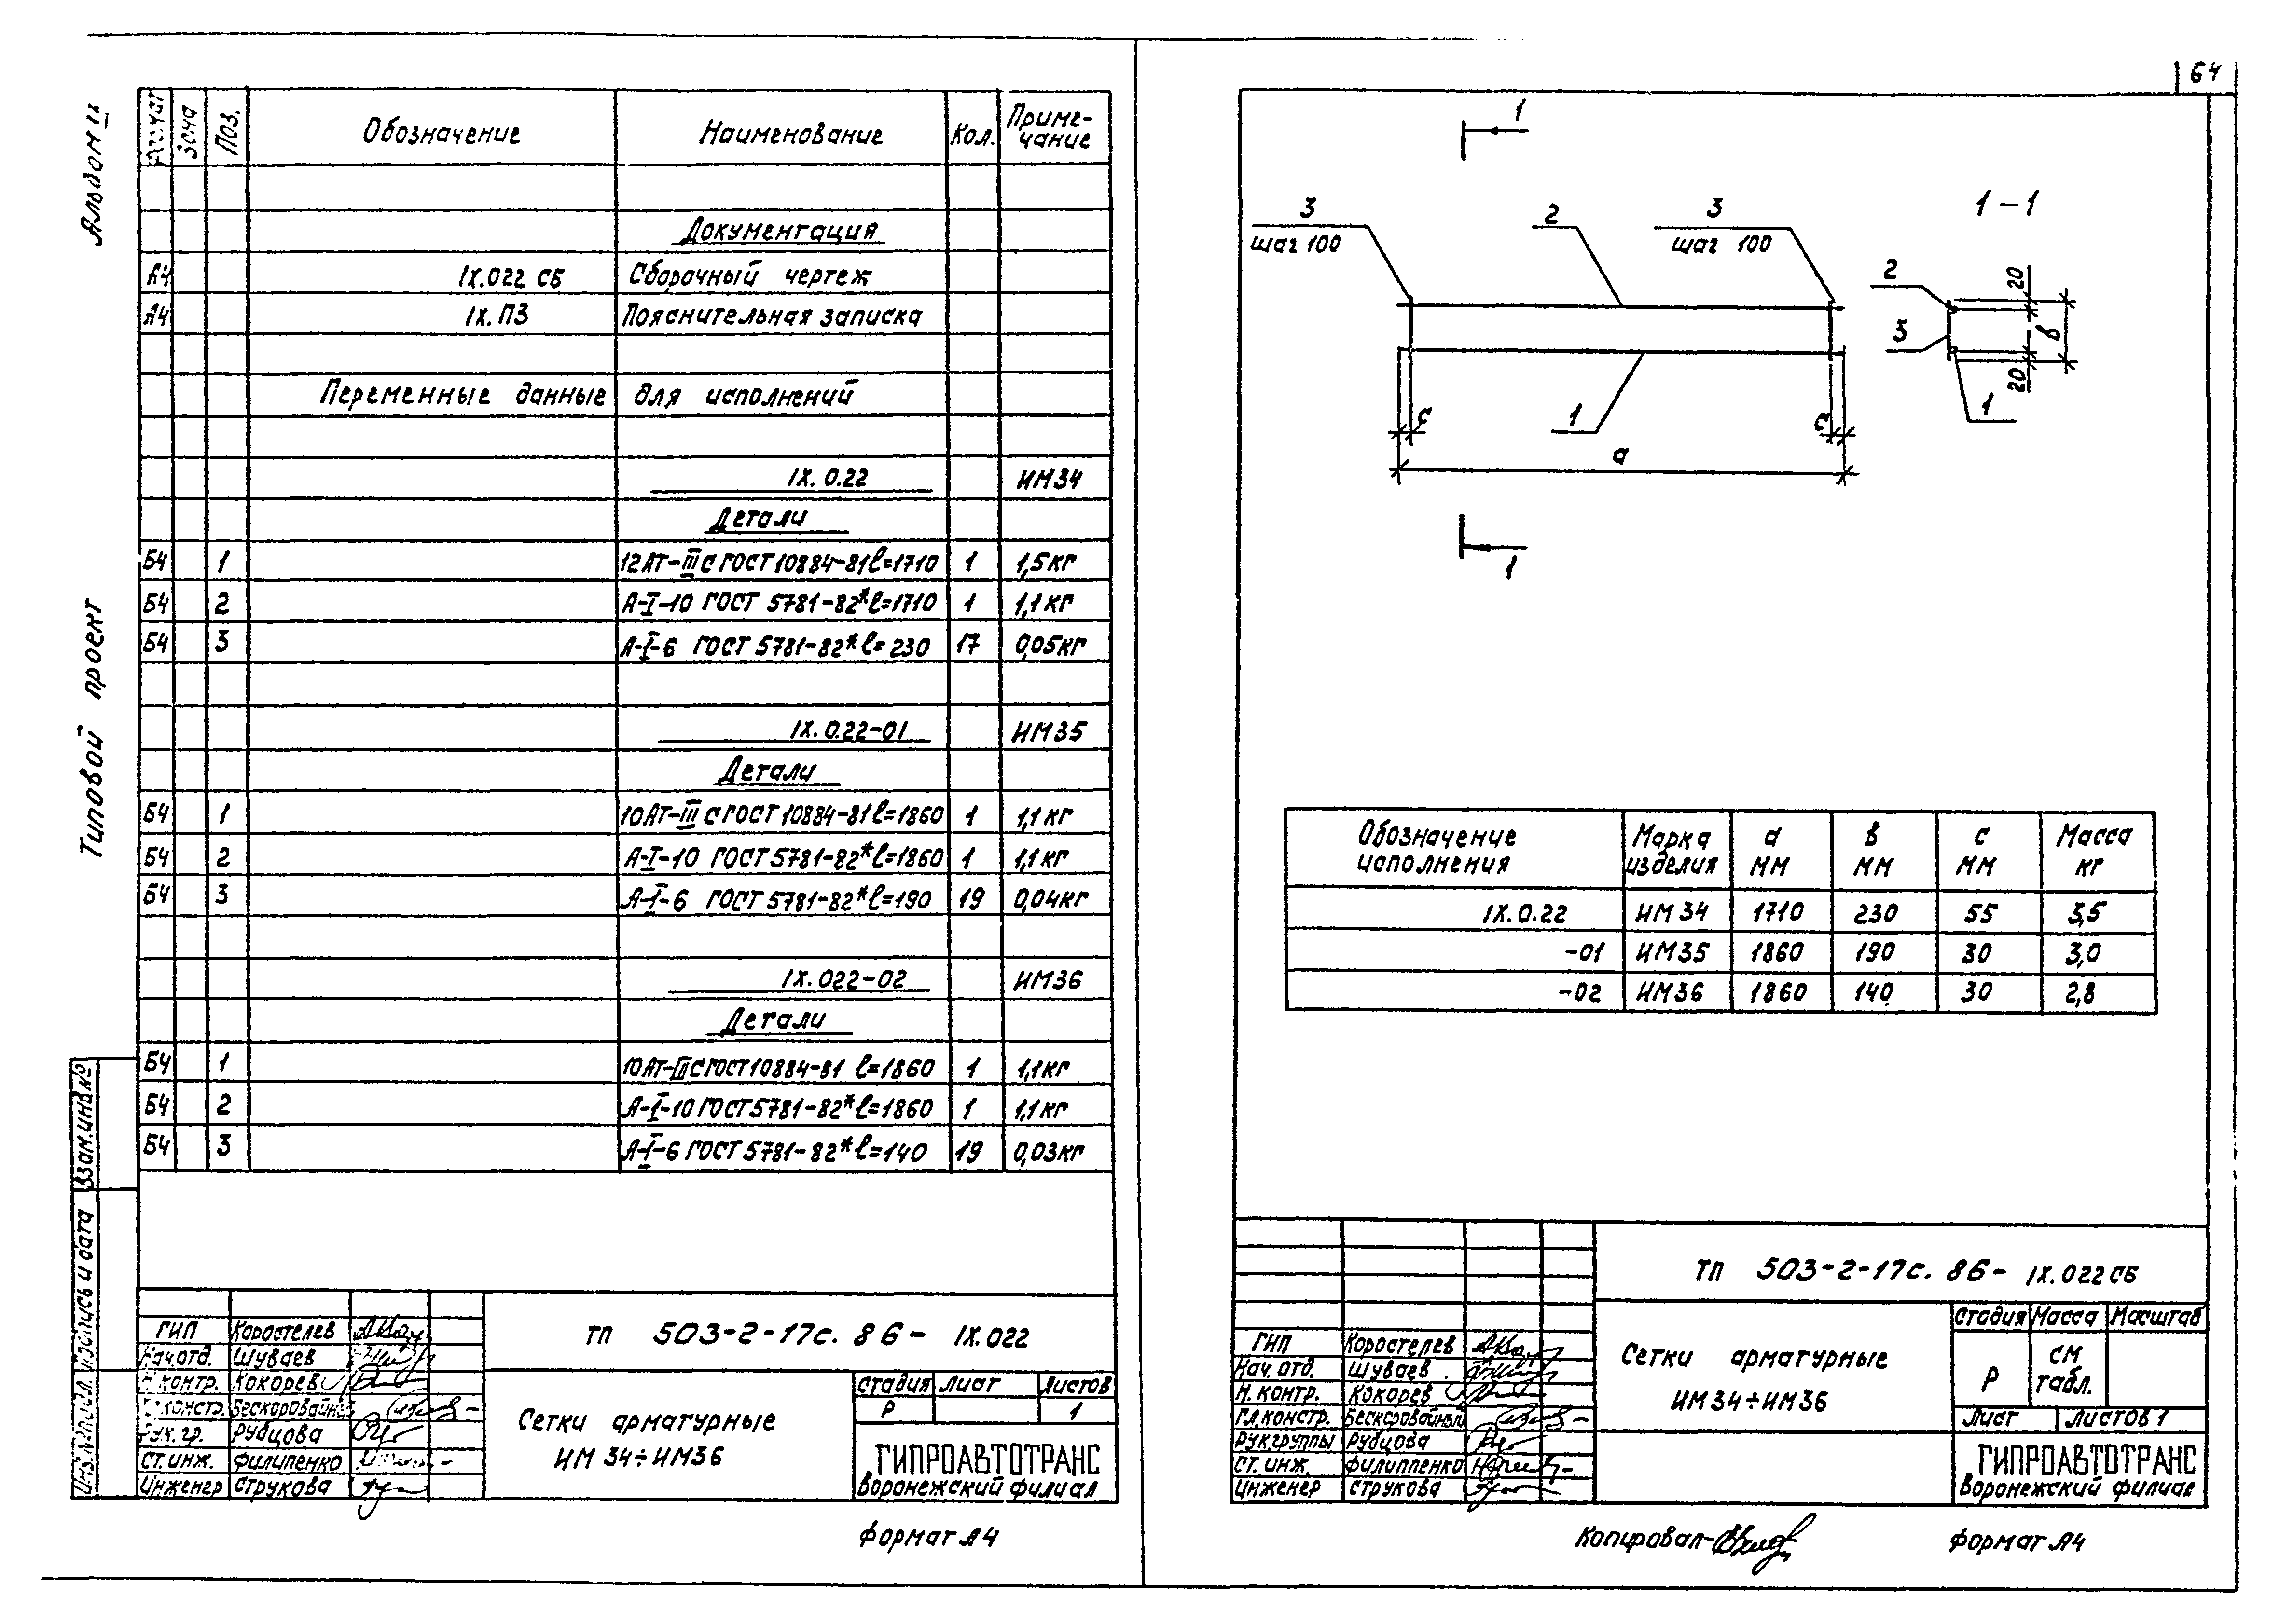 64
Альбом IX
Типовой проект
Формат Зона Поз. Обозначение Наименование Кол. Приме-
чание
Документация
А4 IX.022 СБ Сборочный чертеж
А4 IX.ПЗ Пояснительная записка
Переменные данные для исполнений
IX.0.22 ИМ34
Детали
Б4 1 12АТ-III С ГОСТ 10884-81 ℓ=1710 1 1,5кг
Б4 2 А-I-10 ГОСТ 5781-82* ℓ=1710 1 1,1кг
Б4 3 А-I-6 ГОСТ 5781-82* ℓ=230 17 0,05кг
IX.0.22-01 ИМ35
Детали
Б4 1 10АТ-III С ГОСТ 10884-81 ℓ=1860 1 1,1кг
Б4 2 А-I-10 ГОСТ 5781-82* ℓ=1860 1 1,1кг
Б4 3 А-I-6 ГОСТ 5781-82* ℓ=190 19 0,04кг
IX.022-02 ИМ36
Детали
Б4 1 10АТ-III С ГОСТ 10884-81 ℓ=1860 1 1,1кг
Б4 2 А-I-10 ГОСТ 5781-82* ℓ=1860 1 1,1кг
Б4 3 А-I-6 ГОСТ 5781-82* ℓ=140 19 0,03кг
Взам.инв.№
Подпись и дата
Инв.№подл.
ГИП Коростелев
Нач.отд. Шуваев
Н.контр. Кокорев
Гл.констр. Бескоровайный
Рук.гр. Рубцова
Ст.инж. Филипенко
Инженер Струкова
ТП 503-2-17с.86- IX.022
Сетки арматурные
ИМ 34÷ИМ36
Стадия Лист Листов
Р 1
ГИПРОАВТОТРАНС
Воронежский филиал
Формат А4
1
3
шаг 100
2
3
шаг 100
1
с
с
а
1
1-1
2
3
1
20
20
в
Обозначение
исполнения
Марка
изделия
а
мм
в
мм
с
мм
Масса
кг
IX.0.22 ИМ34 1710 230 55 3,5
-01 ИМ35 1860 190 30 3,0
-02 ИМ36 1860 140 30 2,8
ГИП Коростелев
Нач. отд. Шуваев
Н. контр. Кокорев
Гл.констр. Бескоровайный
Рук.группы Рубцова
Ст. инж. Филиппенко
Инженер Струкова
ТП 503-2-17с.86- IX.022 СБ
Сетки арматурные
ИМ34÷ИМ36
Стадия Масса Масштаб
Р см
табл.
Лист Листов 1
ГИПРОАВТОТРАНС
Воронежский филиал
Копировал-
Формат А4